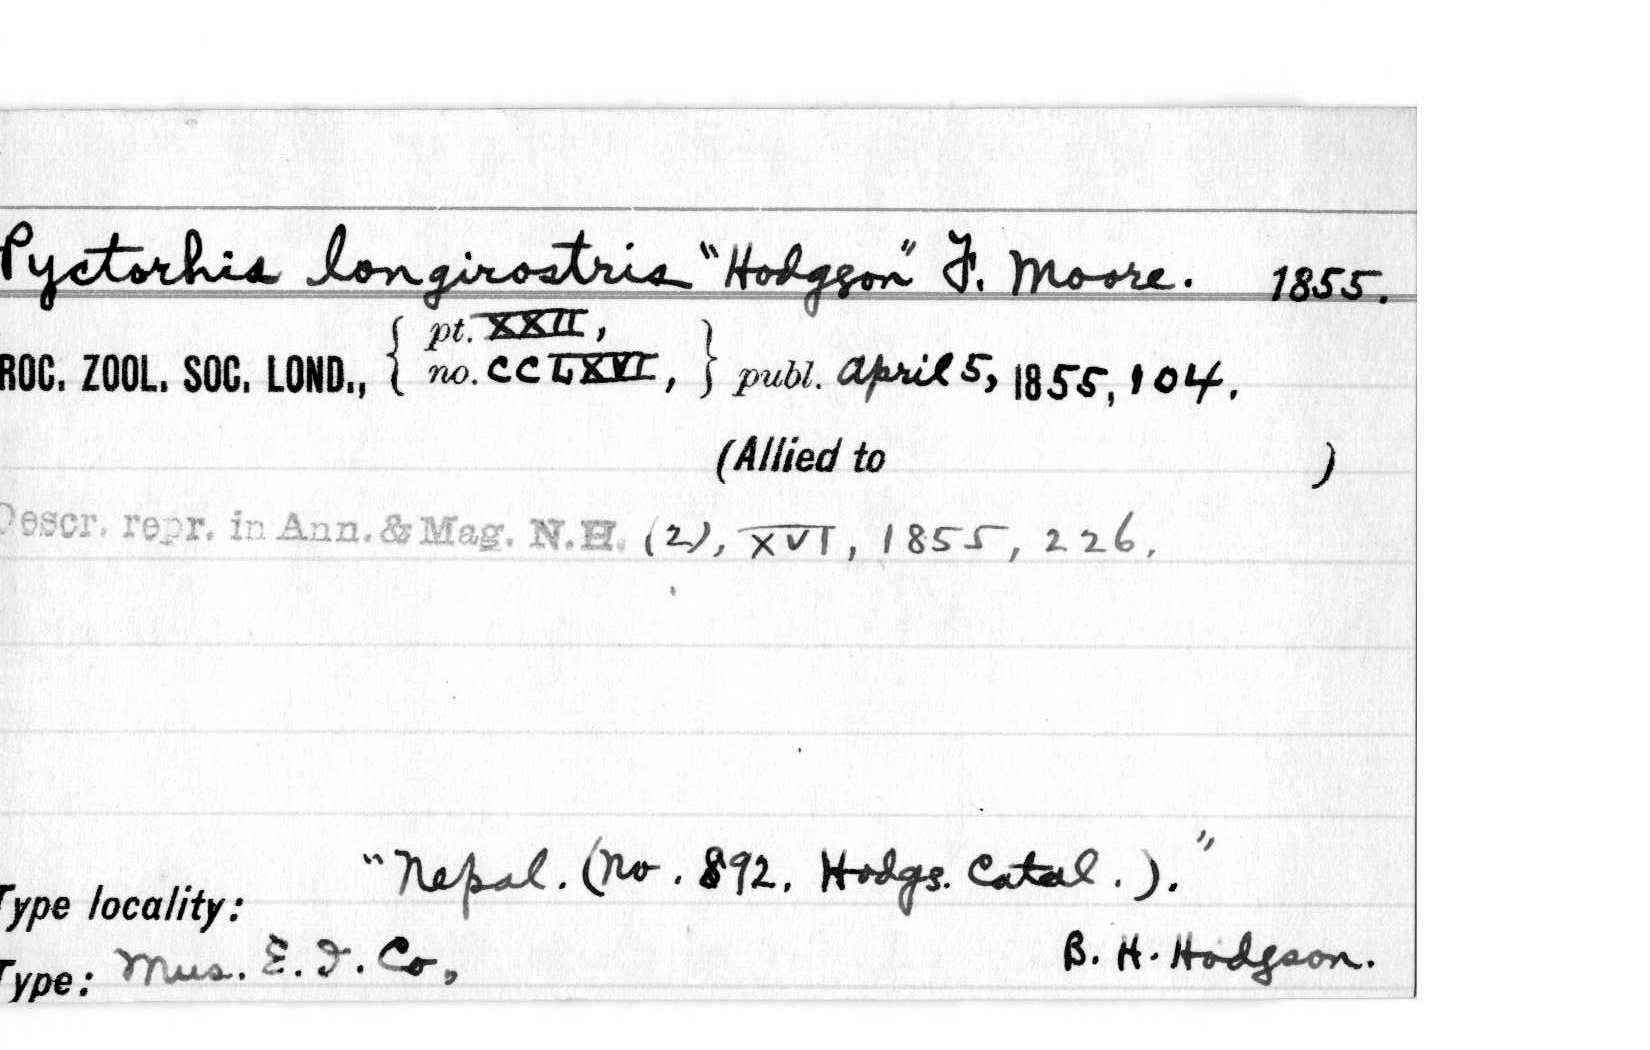 Pyctorhis longirostris "Hodgson" F. Moore. 1855.
pt. XXII,
ROC. ZOOL. SOC. LOND., { no. CCLXVI, } publ. April 5, 1855, 104.
(Allied to )
Descr. repr. in Ann. & Mag. N.H. (2), XVI, 1855, 226.
"Nepal. (No. 892. Hodgs. Catal.)."
Type locality:
Type: Mus. E. I. Co, B. H. Hodgson.